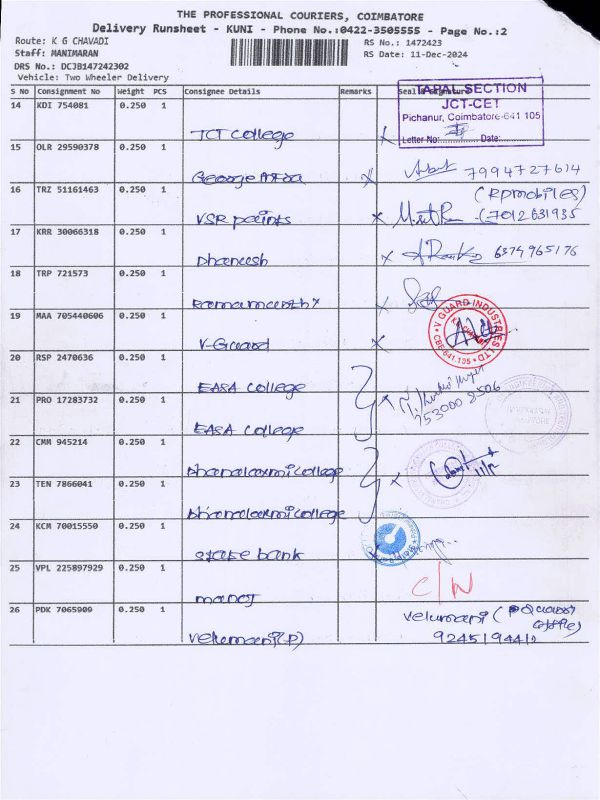 THE PROFESSIONAL COURIERS, COIMBATORE
Delivery Runsheet - KUNI - Phone No.:0422-3505555 - Page No.:2
Route: K G CHAVADI
RS No.: 1472423
Staff: MANIMARAN
RS Date: 11-Dec-2024
DRS No.: DCJB147242302
Vehicle: Two Wheeler Delivery
S No Consignment No Weight PCS Consignee Details Remarks Seal & Signature
TAPAL SECTION
JCT-CET
Pichanur, Coimbatore-641 105
Letter No: Date:
14 KDI 754081 0.250 1 JCT College
15 OLR 29590378 0.250 1 George 7994727614
(Rpmobiles)
16 TRZ 51161463 0.250 1 VSR paints 7012631935
17 KRR 30066318 0.250 1 Dhaneesh 6374965176
18 TRP 721573 0.250 1
19 MAA 705440606 0.250 1 V-Guard
V GUARD INDUSTRIES LTD
CBE-641 105
20 RSP 2470636 0.250 1 EASA College
21 PRO 17283732 0.250 1 EASA College
22 CMM 945214 0.250 1 Dhanalaxmi college
23 TEN 7866041 0.250 1 Dhanalaxmi college
24 KCM 70015550 0.250 1 State bank
25 VPL 225897929 0.250 1 manoj C/N
26 PDK 7065909 0.250 1 Velumani(P) Velumani